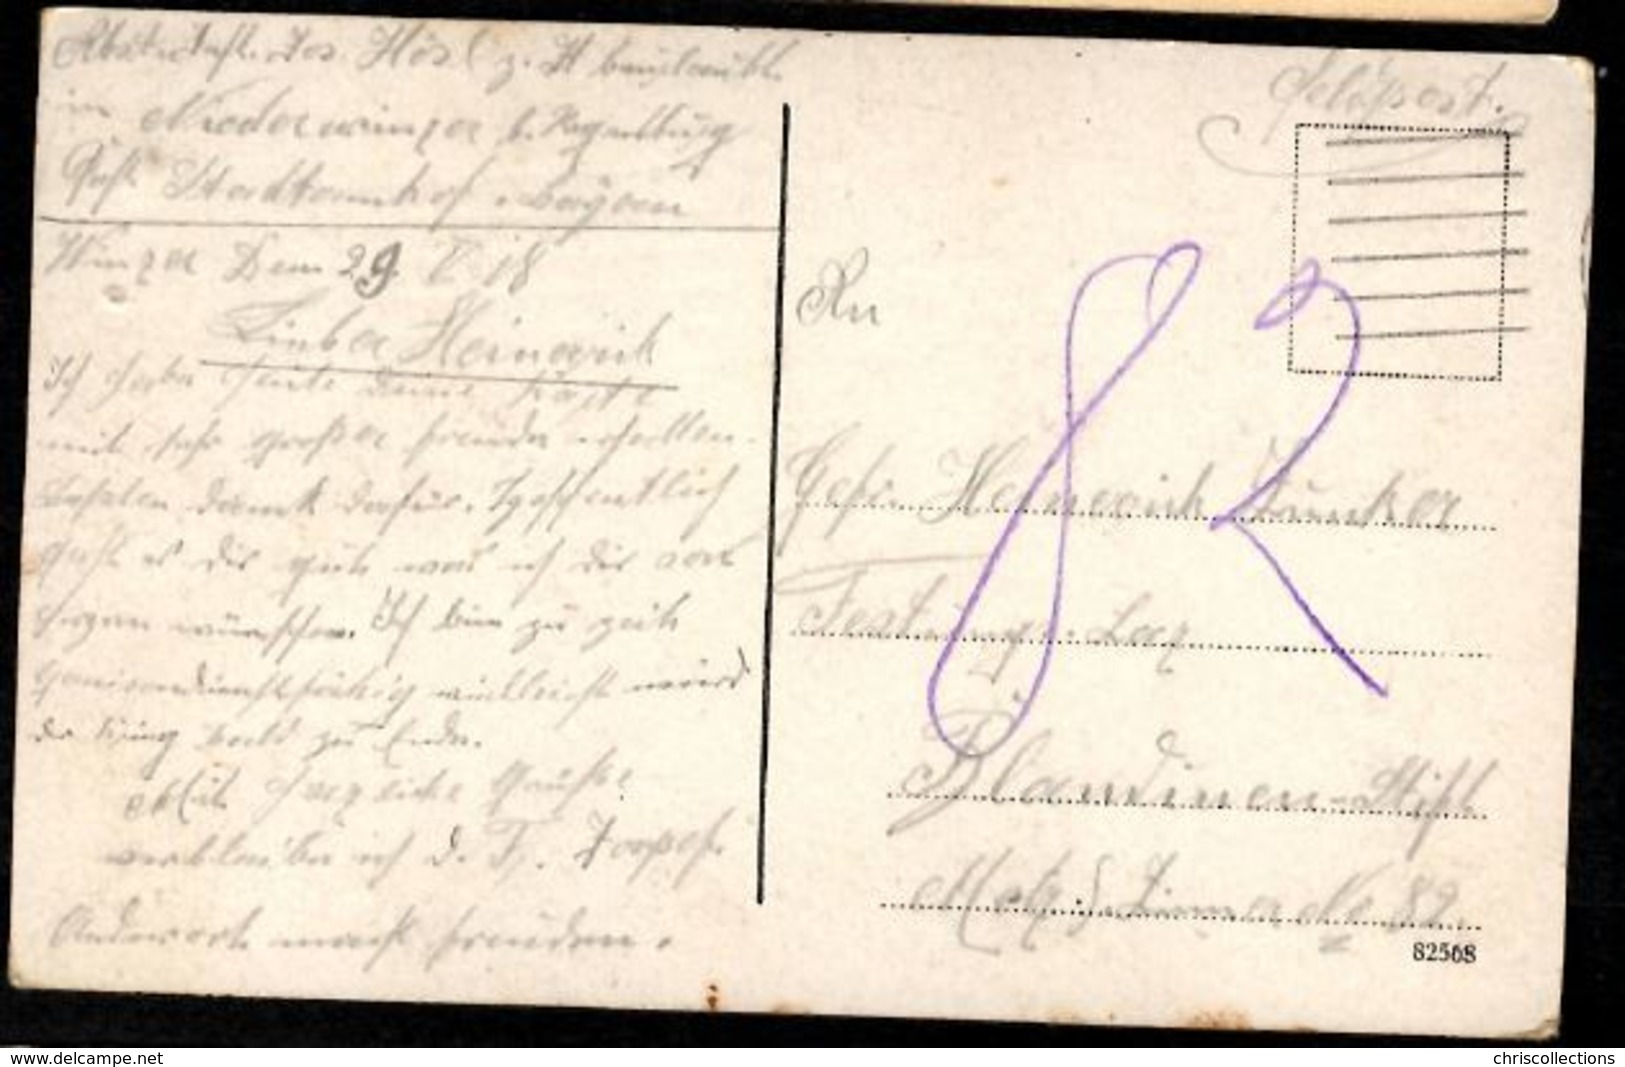 Jos. Hösl z. Zt beurlaubt.
in Niederwinzer b. Regensburg
Post Stadtamhof Bayern
Winzer Dem 29. V 18
Lieber Heinerich
Ich habe heute deine Karte
mit sehr großer freude erhalten.
Besten Dank dafür. Hoffentlich
geht es dir gut was ich dir von
herzen wünsche. Ich bin zu zeit
garnisondienstfähig vielleicht wird
der Krieg bald zu Ende.
Mit herzliche Grüße
verbleibe ich d. Fr. Josef.
Andwort macht freuden.
Feldpost.
An
82
Gefr. Heinerich Junker
Festungs-Laz
Blandinen-Stift
Metz Zimmer No 82.
82568
www.delcampe.net
chriscollections